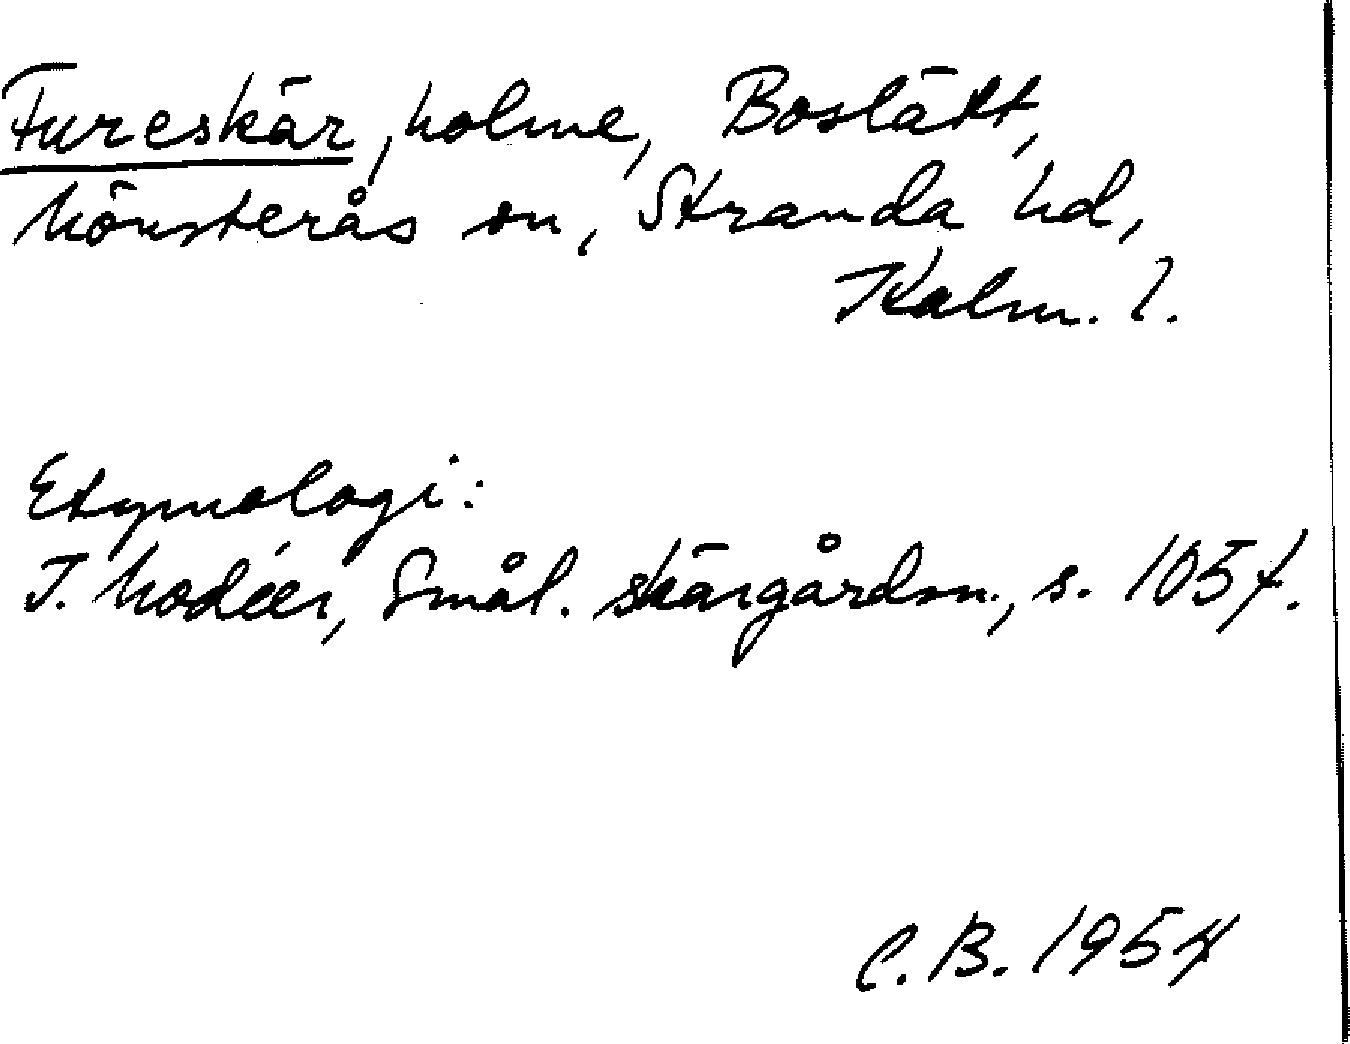 Fureskär, holme, Boslätt,
Mönsterås sn, Stranda hd,
Kalm. l.
Etymologi:
I. Modéer, Smål. skärgårdsn., s. 105 f.
C. B. 1954